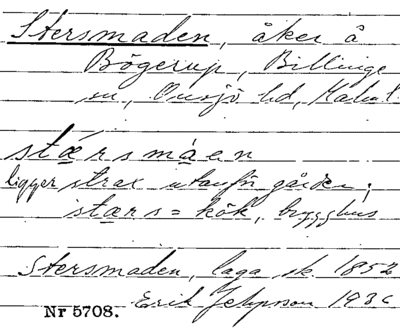 Stersmaden, åker å
Bögerup, Billinge
sn, Onsjö hd, Malm. l.
stærsmáen
ligger strax utanför gården;
stærs = kök, brygghus
Stersmaden, laga sk. 1852
Erik Jeppsson 1936
Nr 5708.